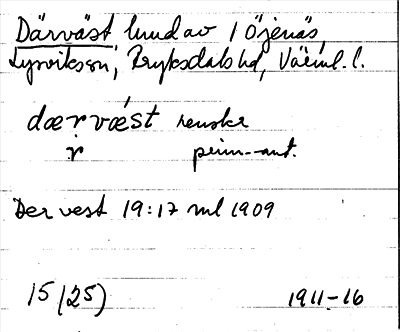 Därväst hmd av 1 Öjenäs,
Lysviks sn, Fryksdals hd, Värml. l.
dærvǽst
ṛ prim.-ant.
Der vest 19:17 ml 1909
15 (25) 1911-16